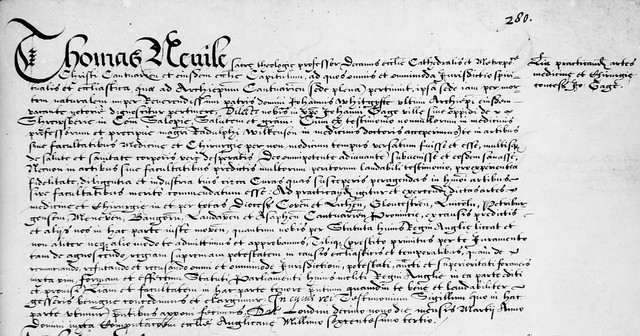 280.
Thomas Nevile sacre theologie professor Decanus ecclie Cathedralis et Metropo
Christi Cantuarien et eiusdem ecclie Capitulum, ad quos omnis et omnimoda Jurisdictio spiri
tualis et ecclastica que ad Archiepum Cantuarien sede plena pertinuit, ipsa sede iam per mor
tem naturalem in per Reverendissimi patris domini Johannis Whitgifte ultimi Archiepi eiusdem
vacante notorie dinoscitur pertinere, Dilecto nobis in xpo Johanni Gage ville sive oppidi de
Shrewsberie in Com Salopie, Salutem et gram. Cum ex testimonio nonnullorum in medicinis
professorum et precipue magri Radulphi Wilkenson in medicinis doctoris acceperimus te in artibus
sive facultatibus Medicine et Chirurgie per non modicum tempus versatum fuisse et esse, multisque
de salute et sanitate corporis vere desperatis Deo competente adiuvante subvenisse et eosdem sanasse,
Necnon in artibus sive facultatibus predictis multorum peritorum laudabili testimonio, pro experientia
fidelitate, diligentia et industria tuis circa Curas quas susceperis peragendas in huiusmodi artibus
sive facultatibus merito commendatum esse Ad practicandum igitur et exercendum dictas artes
medicine et Chirurgie in et per totas Dioceses Coven et Lichen, Gloucestren, Lincoln, Petribur
gensem, Meneven, Bangoren, Landaven et Asaphen Cantuarien Provincie, ex causis predictis
et alijs nos in hac parte iuste moven, quantum nobis per Statuta huius Regni Anglie liceat et
non aliter neque alio modo te admittimus et approbamus, Tibique prestito primitus per te Juramento
tam de agnoscendo, regiam supremam potestatem in causis ecclasticis et temporalibus, quam de
renunciando, refutando et recusando omni et omnimode Jurisdictioni, potestati, aucti et superioritati forincis
iuxta vim formam et effectum Statuti Parliamenti huius incliti Regni Anglie in ea parte editi
et provisi Licentiam et facultatem in hac parte tenore pntium quamdiu te bene et laudabiliter
gesseris benigne concedimus et elargimur. In cuius rei Testimonium Sigillum quo in hac
parte utimur pntibus apponi fecimus Dat Londini decimo nono die mensis Martij Anno
Domini iuxta Computationem ecclie Anglicane Millimo sexcentesimo tertio.
Lia practicandi artes
medicine et Chirurgie
concess Jo. Gage.